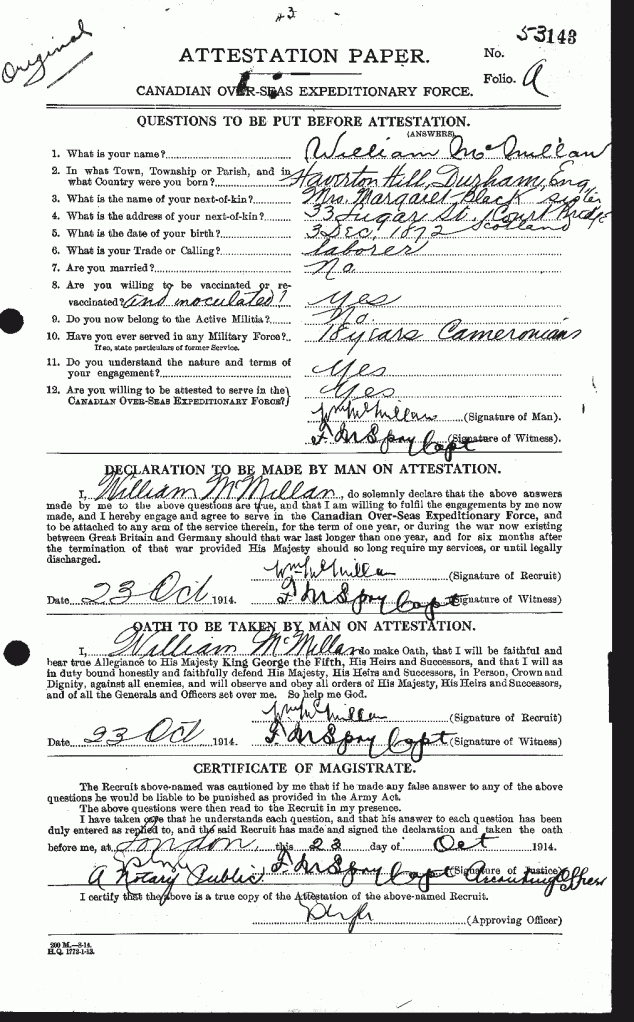 Original
No. 53143
ATTESTATION PAPER.
Folio. A
CANADIAN OVER-SEAS EXPEDITIONARY FORCE.
QUESTIONS TO BE PUT BEFORE ATTESTATION.
(ANSWERS)
1. What is your name? William McMillan
2. In what Town, Township or Parish, and in what Country were you born? Haverton Hill, Durham, Eng
3. What is the name of your next-of-kin? Mrs. Margaret Black sister
4. What is the address of your next-of-kin? 33 Sugar St. Scotland
5. What is the date of your birth? 3 Dec. 1872
6. What is your Trade or Calling? laborer
7. Are you married? No.
8. Are you willing to be vaccinated or re-vaccinated? and inoculated? Yes
9. Do you now belong to the Active Militia? No.
10. Have you ever served in any Military Force? 18 years Cameronians
If so, state particulars of former Service.
11. Do you understand the nature and terms of your engagement? Yes
12. Are you willing to be attested to serve in the CANADIAN OVER-SEAS EXPEDITIONARY FORCE? Yes
Wm McMillan (Signature of Man).
Capt (Signature of Witness).
DECLARATION TO BE MADE BY MAN ON ATTESTATION.
I, William McMillan, do solemnly declare that the above answers
made by me to the above questions are true, and that I am willing to fulfil the engagements by me now
made, and I hereby engage and agree to serve in the Canadian Over-Seas Expeditionary Force, and
to be attached to any arm of the service therein, for the term of one year, or during the war now existing
between Great Britain and Germany should that war last longer than one year, and for six months after
the termination of that war provided His Majesty should so long require my services, or until legally
discharged.
Wm McMillan (Signature of Recruit)
Date 23 Oct 1914. Capt (Signature of Witness)
OATH TO BE TAKEN BY MAN ON ATTESTATION.
I, William McMillan do make Oath, that I will be faithful and
bear true Allegiance to His Majesty King George the Fifth, His Heirs and Successors, and that I will as
in duty bound honestly and faithfully defend His Majesty, His Heirs and Successors, in Person, Crown and
Dignity, against all enemies, and will observe and obey all orders of His Majesty, His Heirs and Successors,
and of all the Generals and Officers set over me. So help me God.
Wm McMillan (Signature of Recruit)
Date 23 Oct 1914. Capt (Signature of Witness)
CERTIFICATE OF MAGISTRATE.
The Recruit above-named was cautioned by me that if he made any false answer to any of the above
questions he would be liable to be punished as provided in the Army Act.
The above questions were then read to the Recruit in my presence.
I have taken care that he understands each question, and that his answer to each question has been
duly entered as replied to, and the said Recruit has made and signed the declaration and taken the oath
before me, at London this 23 day of Oct 1914.
A Notary Public Capt (Signature of Justice)
I certify that the above is a true copy of the Attestation of the above-named Recruit.
(Approving Officer)
200 M.—8-14.
H.Q. 1772-1-13.